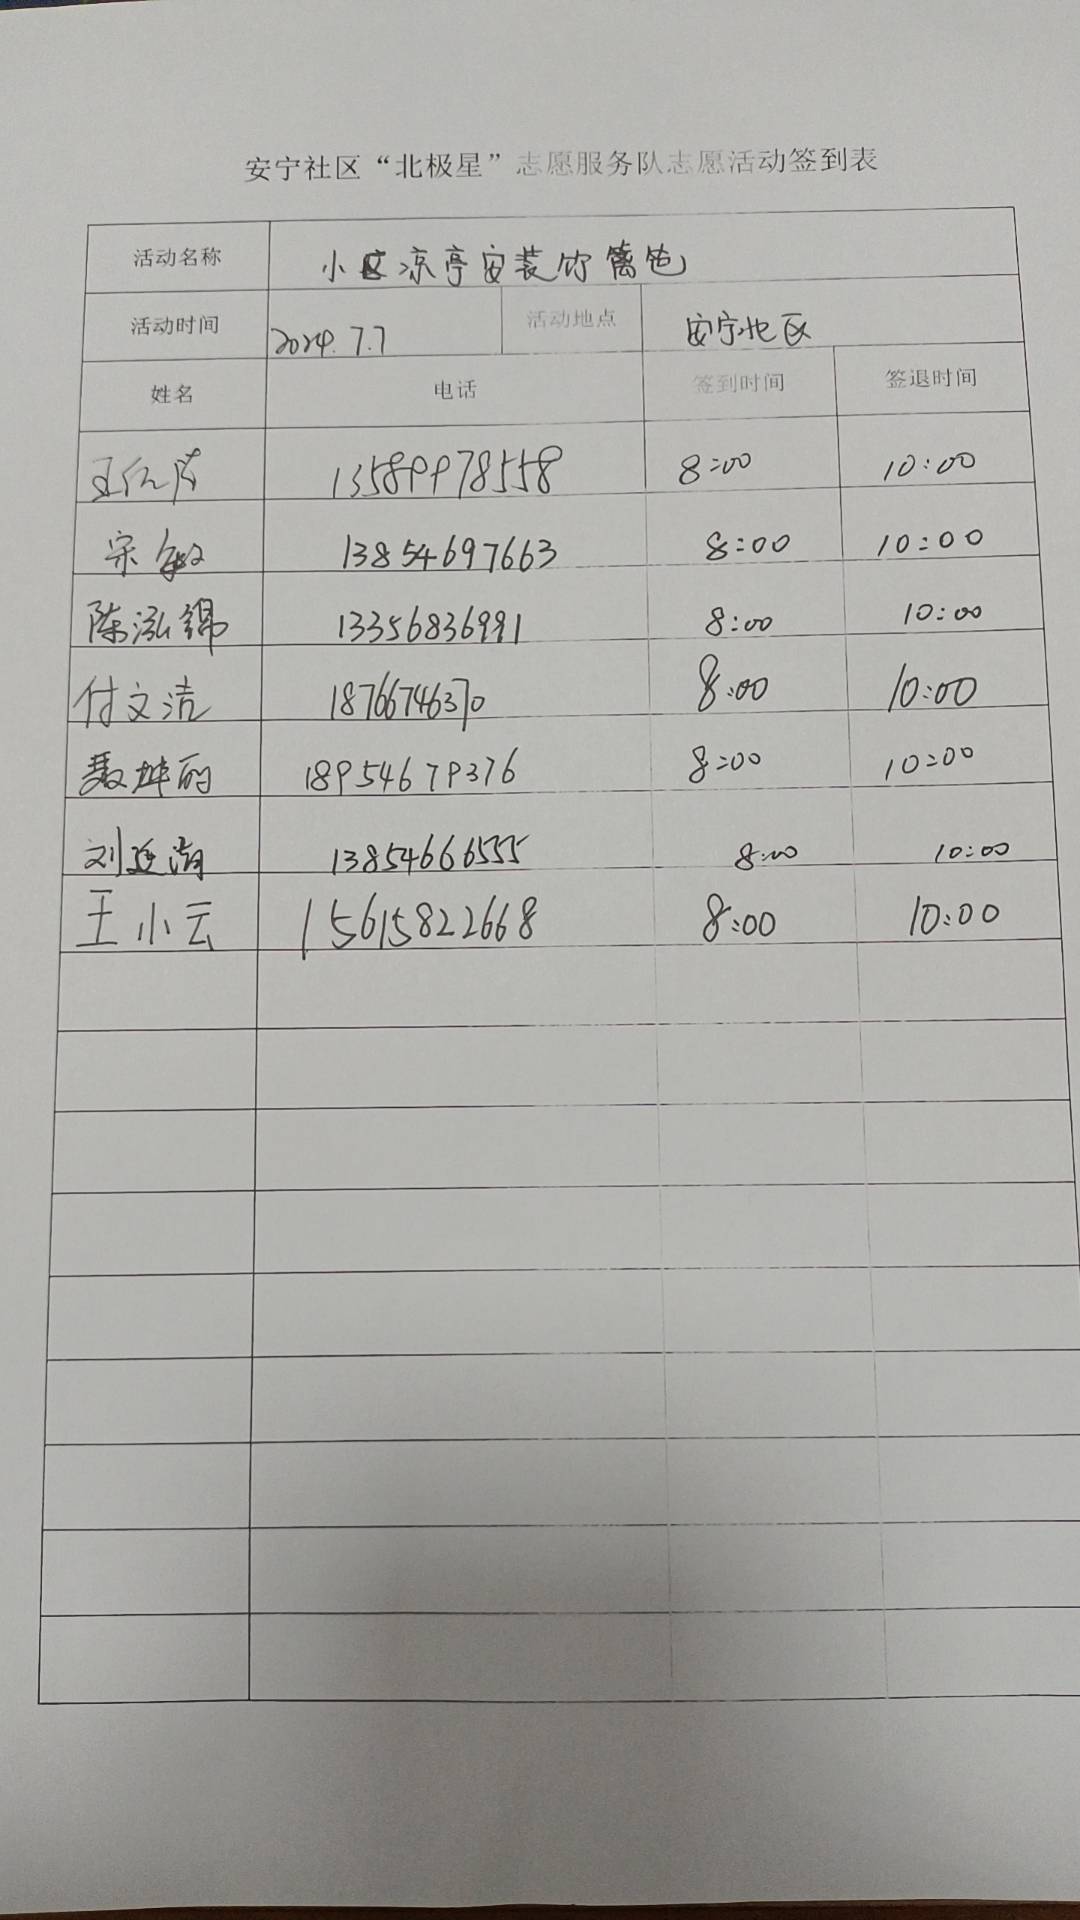 安宁社区“北极星”志愿服务队志愿活动签到表
活动名称 小区凉亭安装竹篱笆
活动时间 2024.7.7 活动地点 安宁北区
姓名 电话 签到时间 签退时间
13589978558 8:00 10:00
宋敏 13854697663 8:00 10:00
陈泓锦 13356836991 8:00 10:00
付文洁 18766746370 8:00 10:00
聂坤丽 18954679376 8:00 10:00
刘廷湖 13854666555 8:00 10:00
王小云 15615822668 8:00 10:00